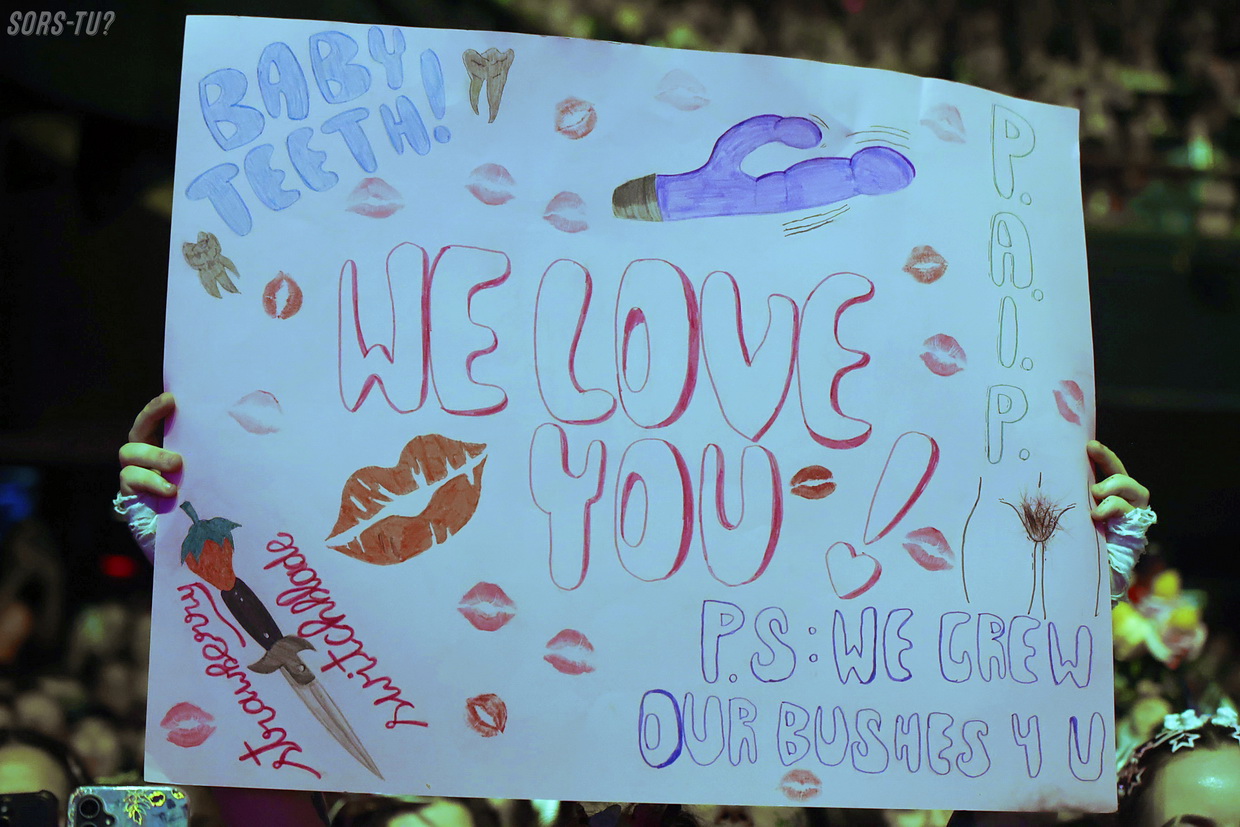 SORS-TU?
BABY
TEETH!
P.A.I.P.
WE LOVE
YOU!
Strawberry
Switchblade
P.S: WE GREW
OUR BUSHES 4 U